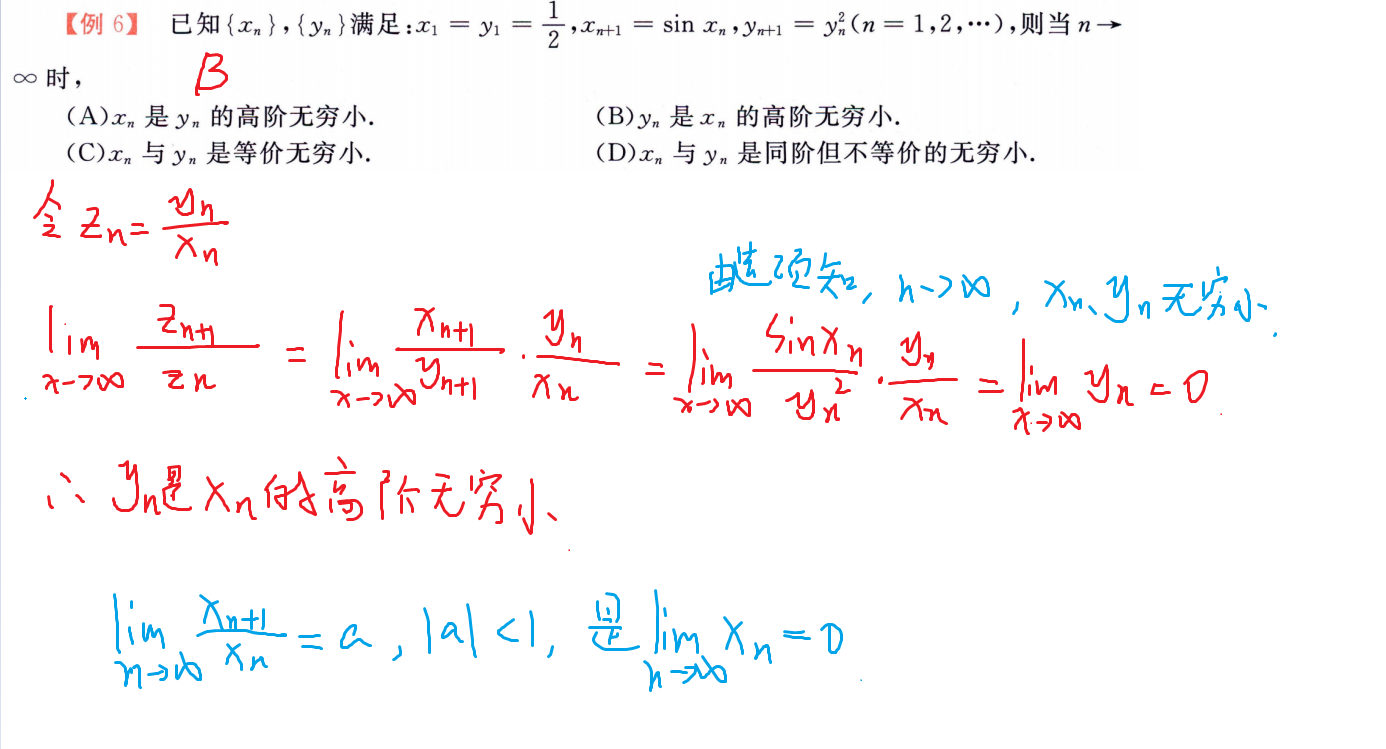 【例 6】 已知{xₙ},{yₙ}满足:x₁ = y₁ = 1/2,xₙ₊₁ = sin xₙ,yₙ₊₁ = yₙ²(n = 1,2,⋯),则当 n →
∞ 时,
B
(A)xₙ 是 yₙ 的高阶无穷小. (B)yₙ 是 xₙ 的高阶无穷小.
(C)xₙ 与 yₙ 是等价无穷小. (D)xₙ 与 yₙ 是同阶但不等价的无穷小.
令 zₙ = yₙ/xₙ
由选项知, n->∞, xₙ、yₙ无穷小.
lim x->∞ zₙ₊₁/zₙ = lim x->∞ xₙ₊₁/yₙ₊₁ · yₙ/xₙ = lim x->∞ sinxₙ/yₙ² · yₙ/xₙ = lim x->∞ yₙ = 0
∴ yₙ是xₙ的高阶无穷小
lim n->∞ xₙ₊₁/xₙ = a, |a|<1, 是 lim n->∞ xₙ = 0